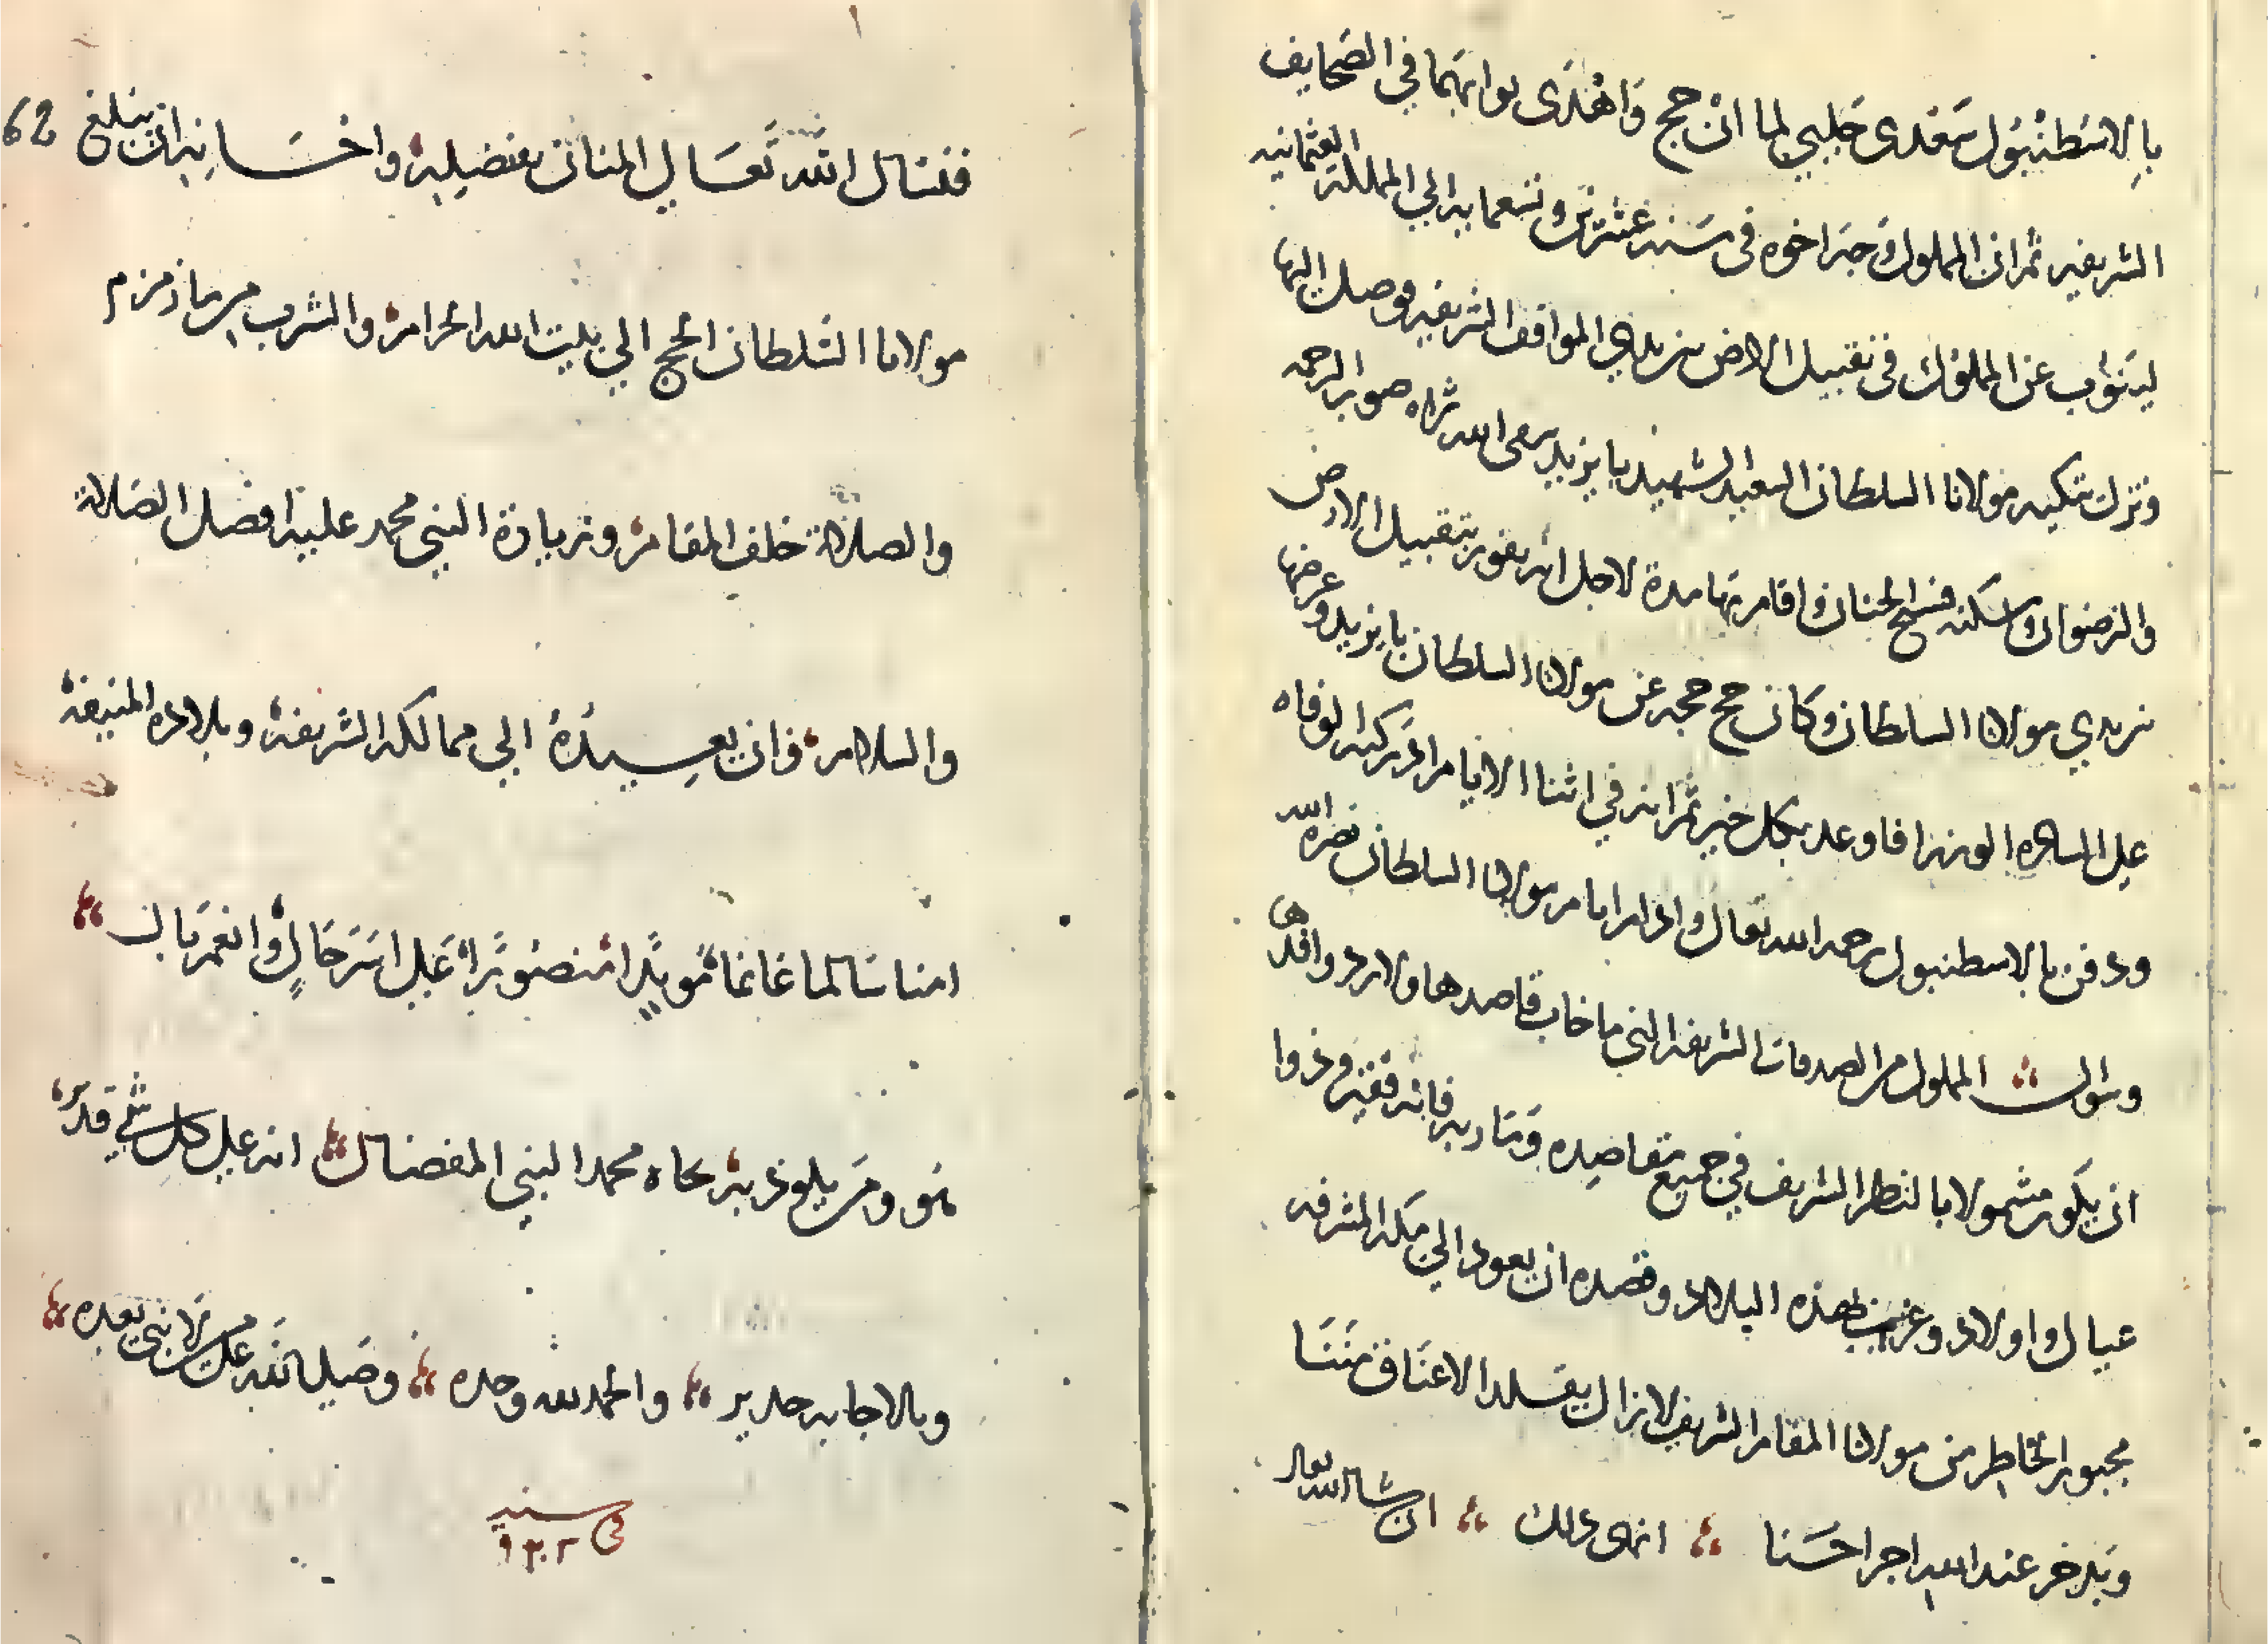 بالاسطنبول سعدى جلبي لما ان حج واهدى ثوابهما في الصحايف
الشريفه ثم ان المملوك وجه اخوه في سنه عشرين وتسعمايه الي المملكه العثمانيه
لينوب عن المملوك في تقبيل الارض بين يدي المواقف الشريفه فوصل اليها
ونزل تكيه مولانا السلطان السعيد الشهيد بايزيد سقى الله ثراه صوب الرحمه
والرضوان واسكنه فسيح الجنان واقام بها مدة لاجل انه يفوز بتقبيل الارض
بين يدي مولانا السلطان وكان حج حجه عن مولانا السلطان بايزيد وعرضها
على الساده الوزرا فاوعد بكل خير ثم انه في اثنا الايام ادركته الوفاه
ودفن بالاسطنبول رحمه الله تعالى وادام ايام مولانا السلطان نصره الله
وسوال المملوك من الصدقات الشريفه التي ما خاب قاصدها ولا رد وافدها
ان يكون مشمولا بالنظر الشريف في جميع مقاصده ومآربه فانه فقير وذوا
عيال واولاد وغريب بهذه البلاد وقصده ان يعود الي مكه المشرفه
مجبور الخاطر من مولانا المقام الشريف لا زال يقلد الاعناق مننا
ويدخر عند الله اجرا حسنا انهى ذلك ان شا الله تعالى
62
فنسال الله تعالي المنان بفضله واحسانه ان يبلغ
مولانا السلطان الحج الي بيت الله الحرام والشرب من ماء زمزم
والصلاة خلف المقام وزيارة النبي محمد عليه افضل الصلاة
والسلام وان يعيده الي ممالكه الشريفة وبلاده المنيفة
امنا سالما غانما مويدا منصورا على استرحال وانعم بال
هو ومن يلوذ به بجاه محمد النبي المفضال انه على كل شي قدير
وبالاجابه جدير والحمد لله وحده وصلى الله على من لا نبي بعده
في سنه
٩٢٠٢